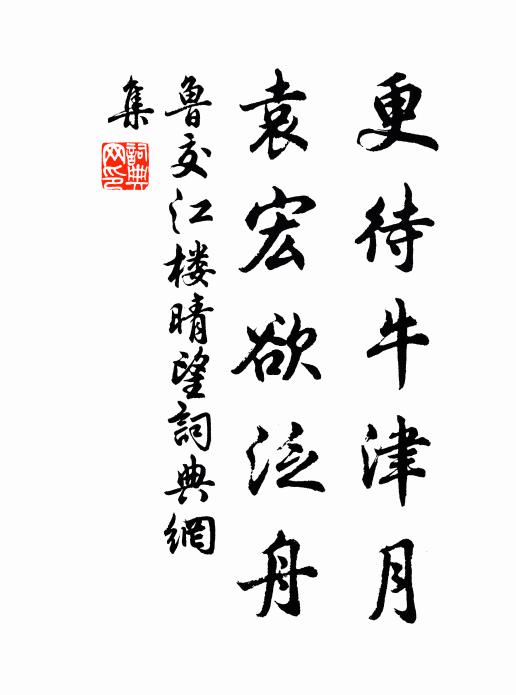 更待牛津月
袁宏欲泛舟
魯交江楼晴望詞典網
集
詞典
网印